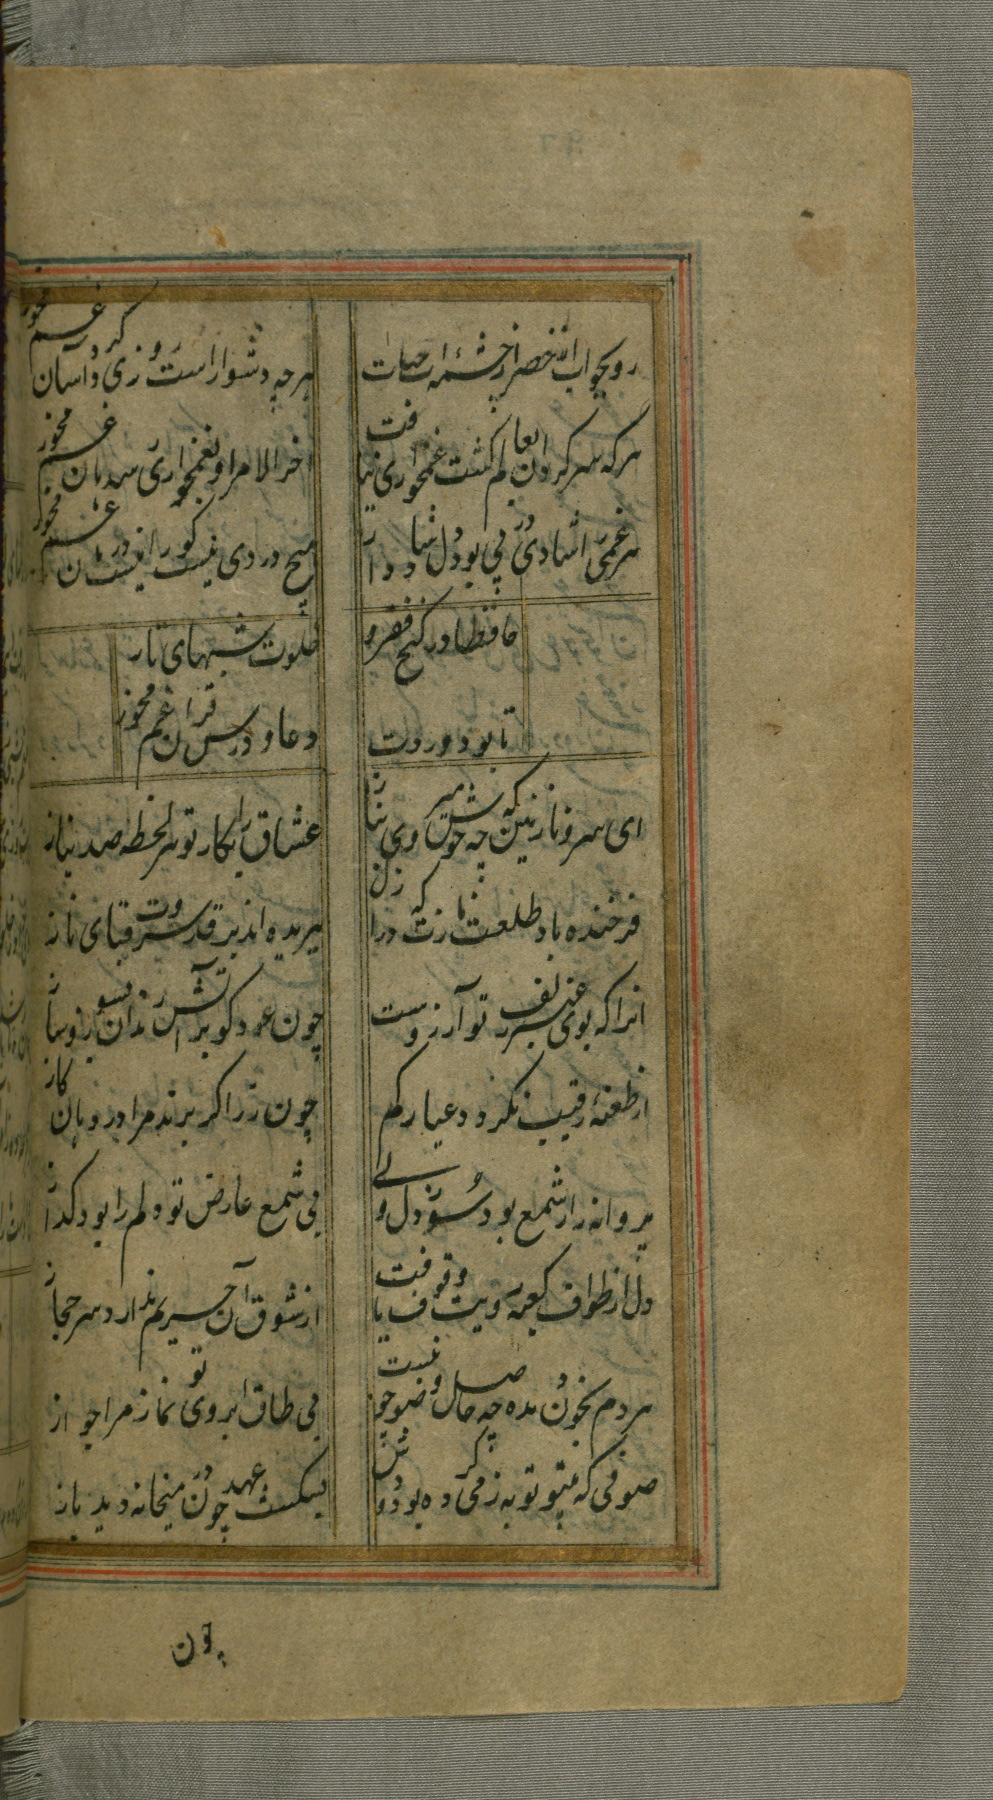 هر چه دشوار است روزی گردد آسان غم مخور
هر که سرگردان بعالم گشت غمخواری نیافت
آخر الامر او بغمخواری رسد هان غم مخور
هر غمی را شادی در پی بود دل شاد دار
هیچ دردی نیست کو را نیست درمان غم مخور
حافظا در کنج فقر و
خلوت شبهای تار
تا بود وردت
دعا و درس قرآن غم مخور
ای سرو ناز نین که چه خوش میروی بناز
عشاق را بکار تو هر لحظه صد نیاز
فرخنده باد طلعت نازت که در ازل
ببریده اند بر قد سروت قبای ناز
انرا که بوی عنبر زلف تو آرزوست
چون عود گو بر آتش سوزان بسوز و ساز
از طعنهٔ رقیب نگردد عیار کم
چون زر اگر برند مرا در دهان کاز
پروانه را ز شمع بود سوز دل ولی
بی شمع عارض تو دلم را بود گداز
دل از طواف کعبه رویت وقوف یافت
از شوق آن حریم ندارد سر حجاز
هر دم بخون دیده چه حاصل وضو چو نیست
بی طاق ابروی تو نماز مرا جواز
صوفی که بیتو توبه ز می کرده بود دوش
بشکست عهد چون در میخانه دید باز
چون